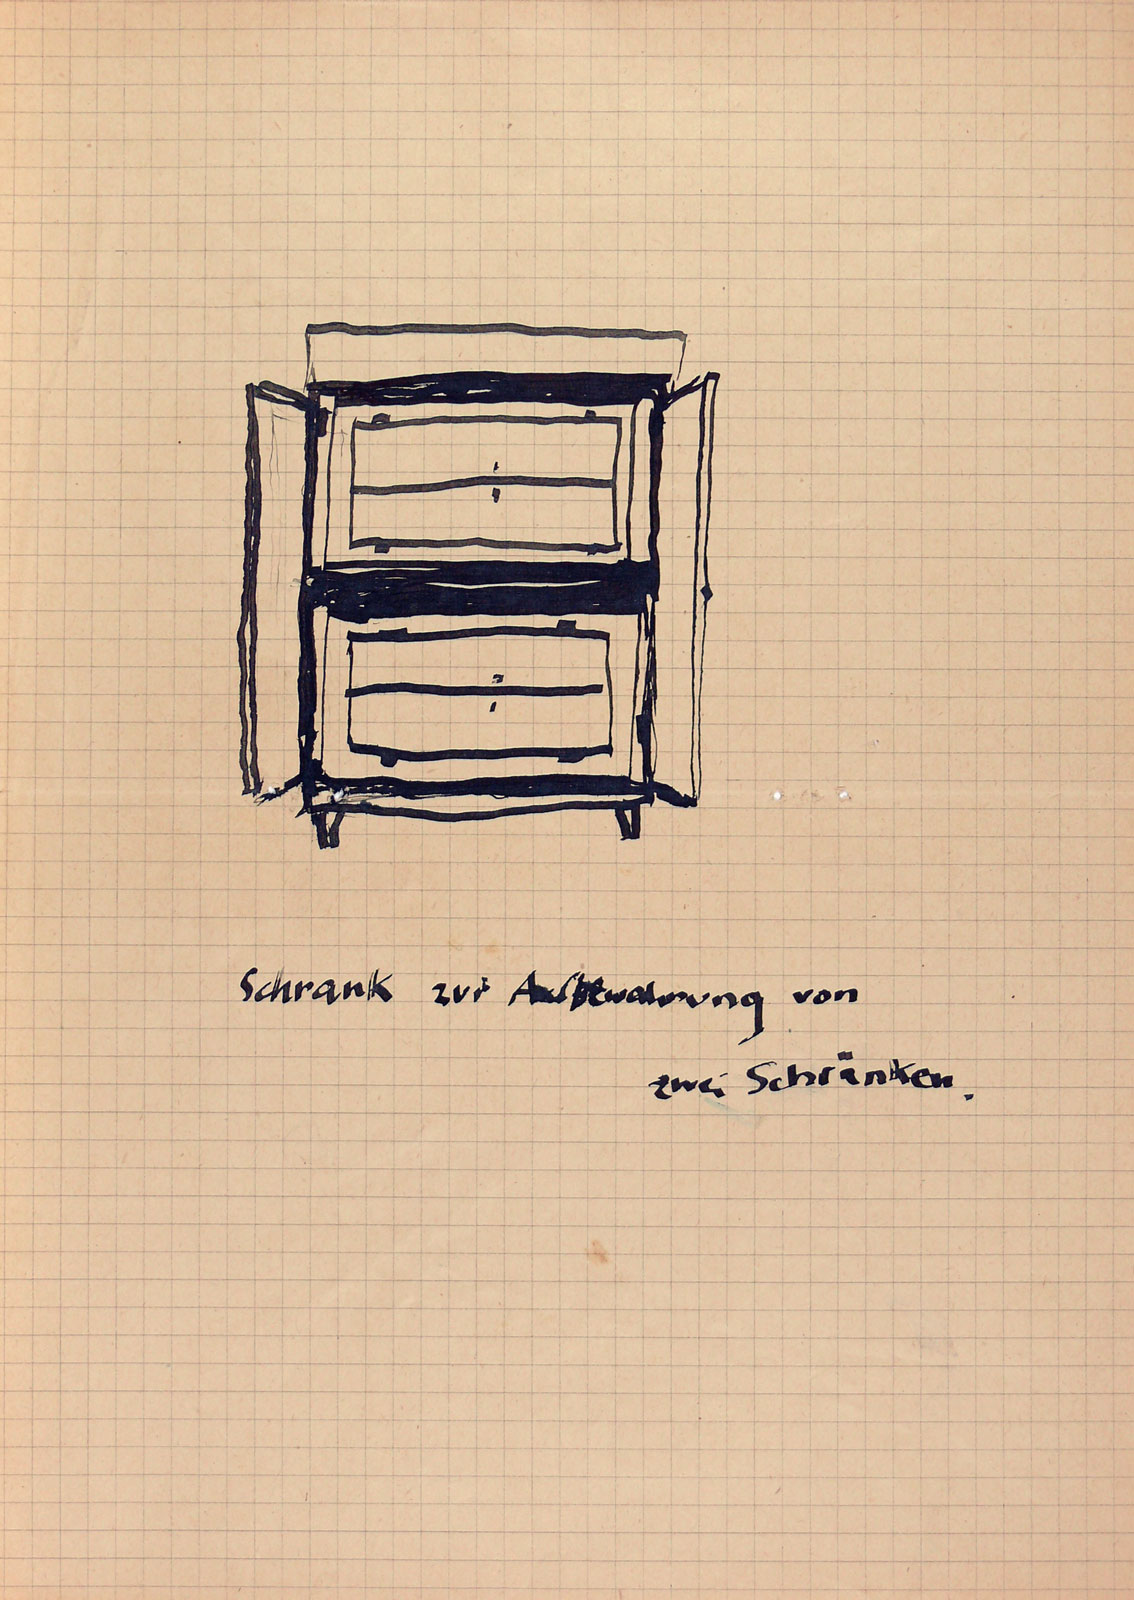 Schrank zur Aufbewahrung von
zwei Schränken.